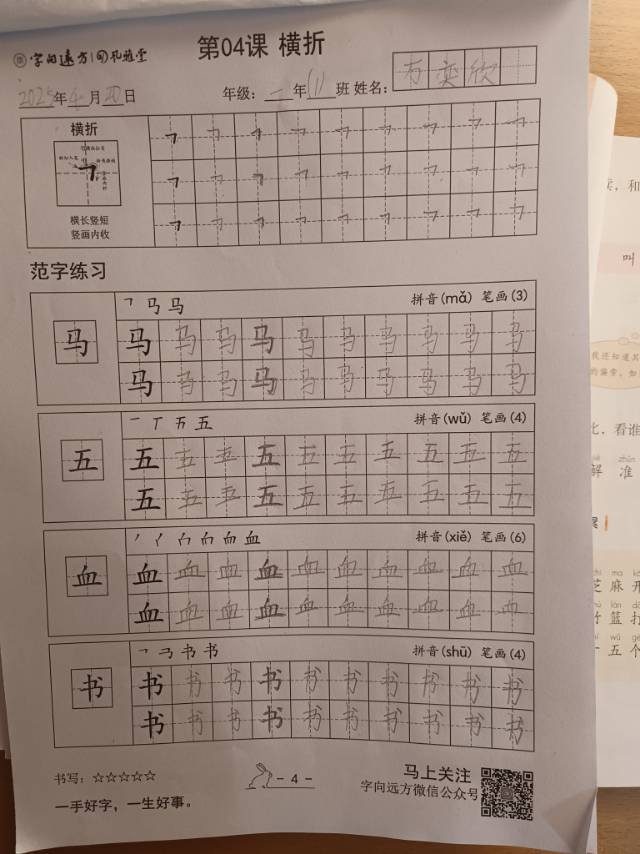 字向远方 孔雅堂
第04课 横折
2025年4月20日 年级：一年(1)班 姓名：奕欣
横折
横长竖短
竖画内收
范字练习
马 拼音(mǎ) 笔画(3)
马 马 马 马 马 马 马 马 马 马 马
马 马 马 马 马 马 马 马 马 马
五 拼音(wǔ) 笔画(4)
五 五 五 五 五 五 五 五 五 五 五
五 五 五 五 五 五 五 五 五 五
血 拼音(xiě) 笔画(6)
血 血 血 血 血 血 血 血 血 血 血
血 血 血 血 血 血 血 血 血 血
书 书 拼音(shū) 笔画(4)
书 书 书 书 书 书 书 书 书 书 书
书 书 书 书 书 书 书 书 书 书
书写：☆☆☆☆☆ - 4 - 马上关注
字向远方微信公众号
一手好字，一生好事。
，和
叫
我还知道其
的偏旁，如
，看谁
zhǔn
解 准
zhī ma kāi
芝 麻 开
zhú lán dǎ
竹 篮 打
shí wǔ gè
十 五 个